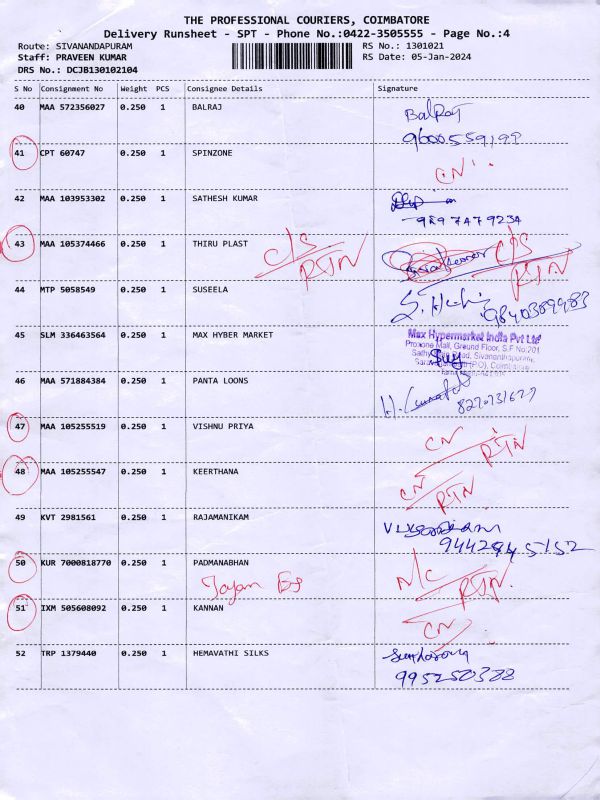 THE PROFESSIONAL COURIERS, COIMBATORE
Delivery Runsheet - SPT - Phone No.:0422-3505555 - Page No.:4
Route: SIVANANDAPURAM RS No.: 1301021
Staff: PRAVEEN KUMAR RS Date: 05-Jan-2024
DRS No.: DCJB130102104
S No Consignment No Weight PCS Consignee Details Signature
40 MAA 572356027 0.250 1 BALRAJ Balraj
9600559199
41 CPT 60747 0.250 1 SPINZONE CN
42 MAA 103953302 0.250 1 SATHESH KUMAR
9897479234
43 MAA 105374466 0.250 1 THIRU PLAST C/S RTN C/S RTN
44 MTP 5058549 0.250 1 SUSEELA 9840389983
45 SLM 336463564 0.250 1 MAX HYBER MARKET
Max Hypermarket India Pvt Ltd
Prozone Mall, Ground Floor, S.F No.201
Sathy Road, Sivanandhapuram,
46 MAA 571884384 0.250 1 PANTA LOONS
47 MAA 105255519 0.250 1 VISHNU PRIYA CN RTN
48 MAA 105255547 0.250 1 KEERTHANA CN RTN
49 KVT 2981561 0.250 1 RAJAMANIKAM
9442945152
50 KUR 7000818770 0.250 1 PADMANABHAN N/C RTN
51 IXM 505608092 0.250 1 KANNAN CN
52 TRP 1379440 0.250 1 HEMAVATHI SILKS